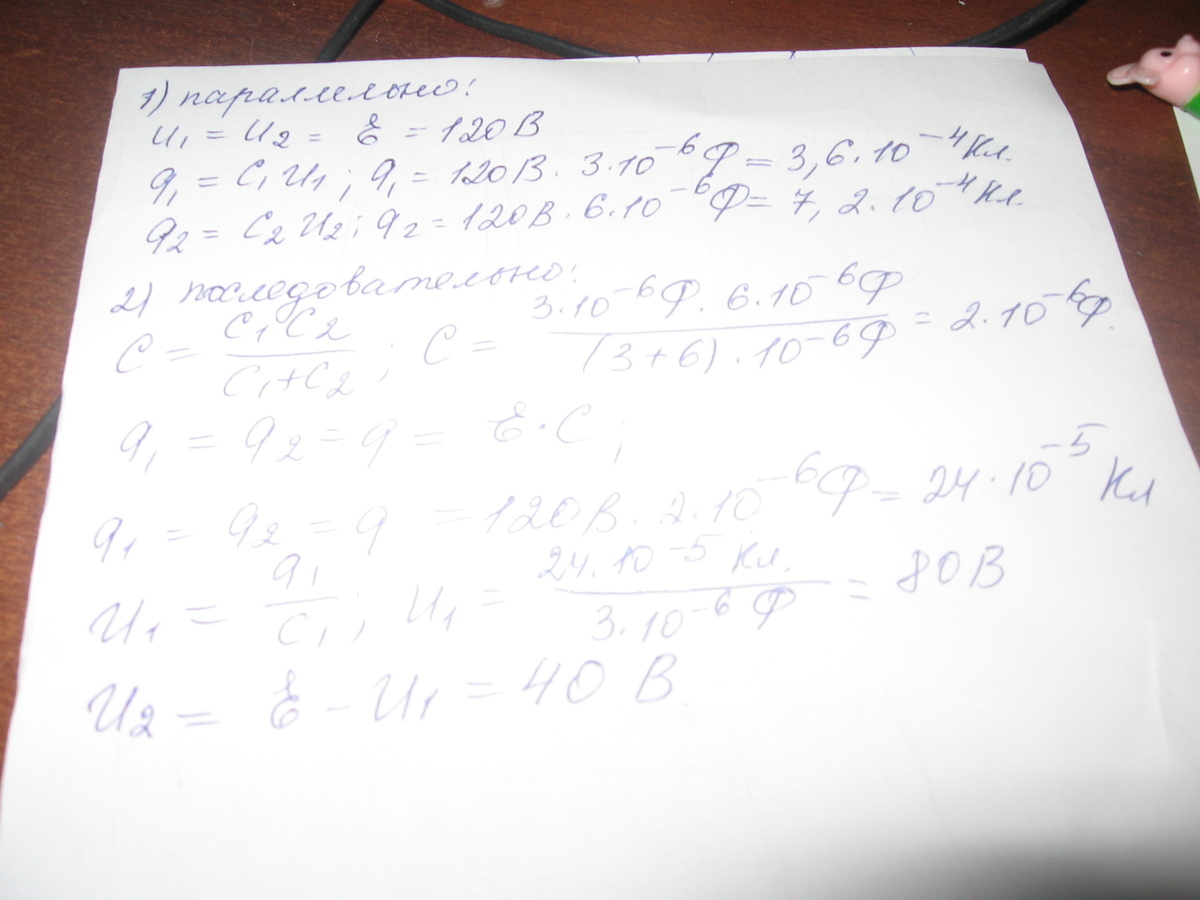 1) параллельно:
U₁ = U₂ = ℰ = 120 В
q₁ = C₁U₁; q₁ = 120 В · 3·10⁻⁶ Ф = 3,6·10⁻⁴ Кл.
q₂ = C₂U₂; q₂ = 120 В · 6·10⁻⁶ Ф = 7,2·10⁻⁴ Кл.
2) последовательно:
C = C₁C₂ / C₁+C₂; C = 3·10⁻⁶ Ф · 6·10⁻⁶ Ф / (3+6)·10⁻⁶ Ф = 2·10⁻⁶ Ф.
q₁ = q₂ = q = ℰ·C;
q₁ = q₂ = q = 120 В · 2·10⁻⁶ Ф = 24·10⁻⁵ Кл
U₁ = q₁ / C₁; U₁ = 24·10⁻⁵ Кл. / 3·10⁻⁶ Ф = 80 В
U₂ = ℰ − U₁ = 40 В.